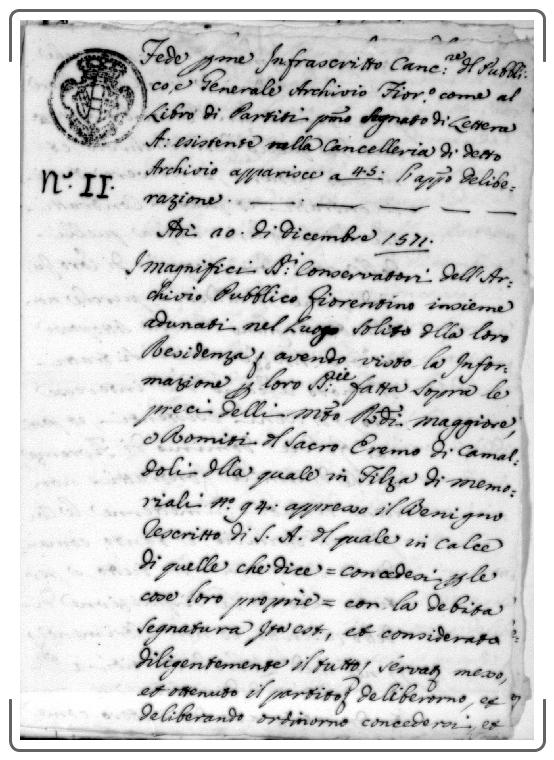 Fede p me Infrascritto Canc:re dl Pubbli-
co, e Generale Archivio Fior:o come al
Libro di Partiti pmo Segnato di Lettera
A: esistente nella Cancelleria di detto
Archivio apparisce a 45: l'appa Delibe-
razione.
N:o II.
Adi 20. di Dicembre 1571.
I magnifici SS:ri Conservatori dell'Ar-
chivio Pubblico Fiorentino insieme
adunati nel Luogo Solito dlla loro
Residenza, avendo visto la Infor-
mazione p loro SS:rie fatta sopra le
preci delli mto Rdi maggiore,
e Romiti dl Sacro Eremo di Camal-
doli dlla quale in Filza di memo-
riali no: 94: appresso il Benigno
Rescritto di S. A. dl quale in calce
di quelle che dice = concedesi p le
cose loro proprie = con la debita
segnatura Ita est, et considerato
diligentemente il tutto, servat
et ottenuto il partito deliberorno, et
deliberando ordinorno concedersi, et